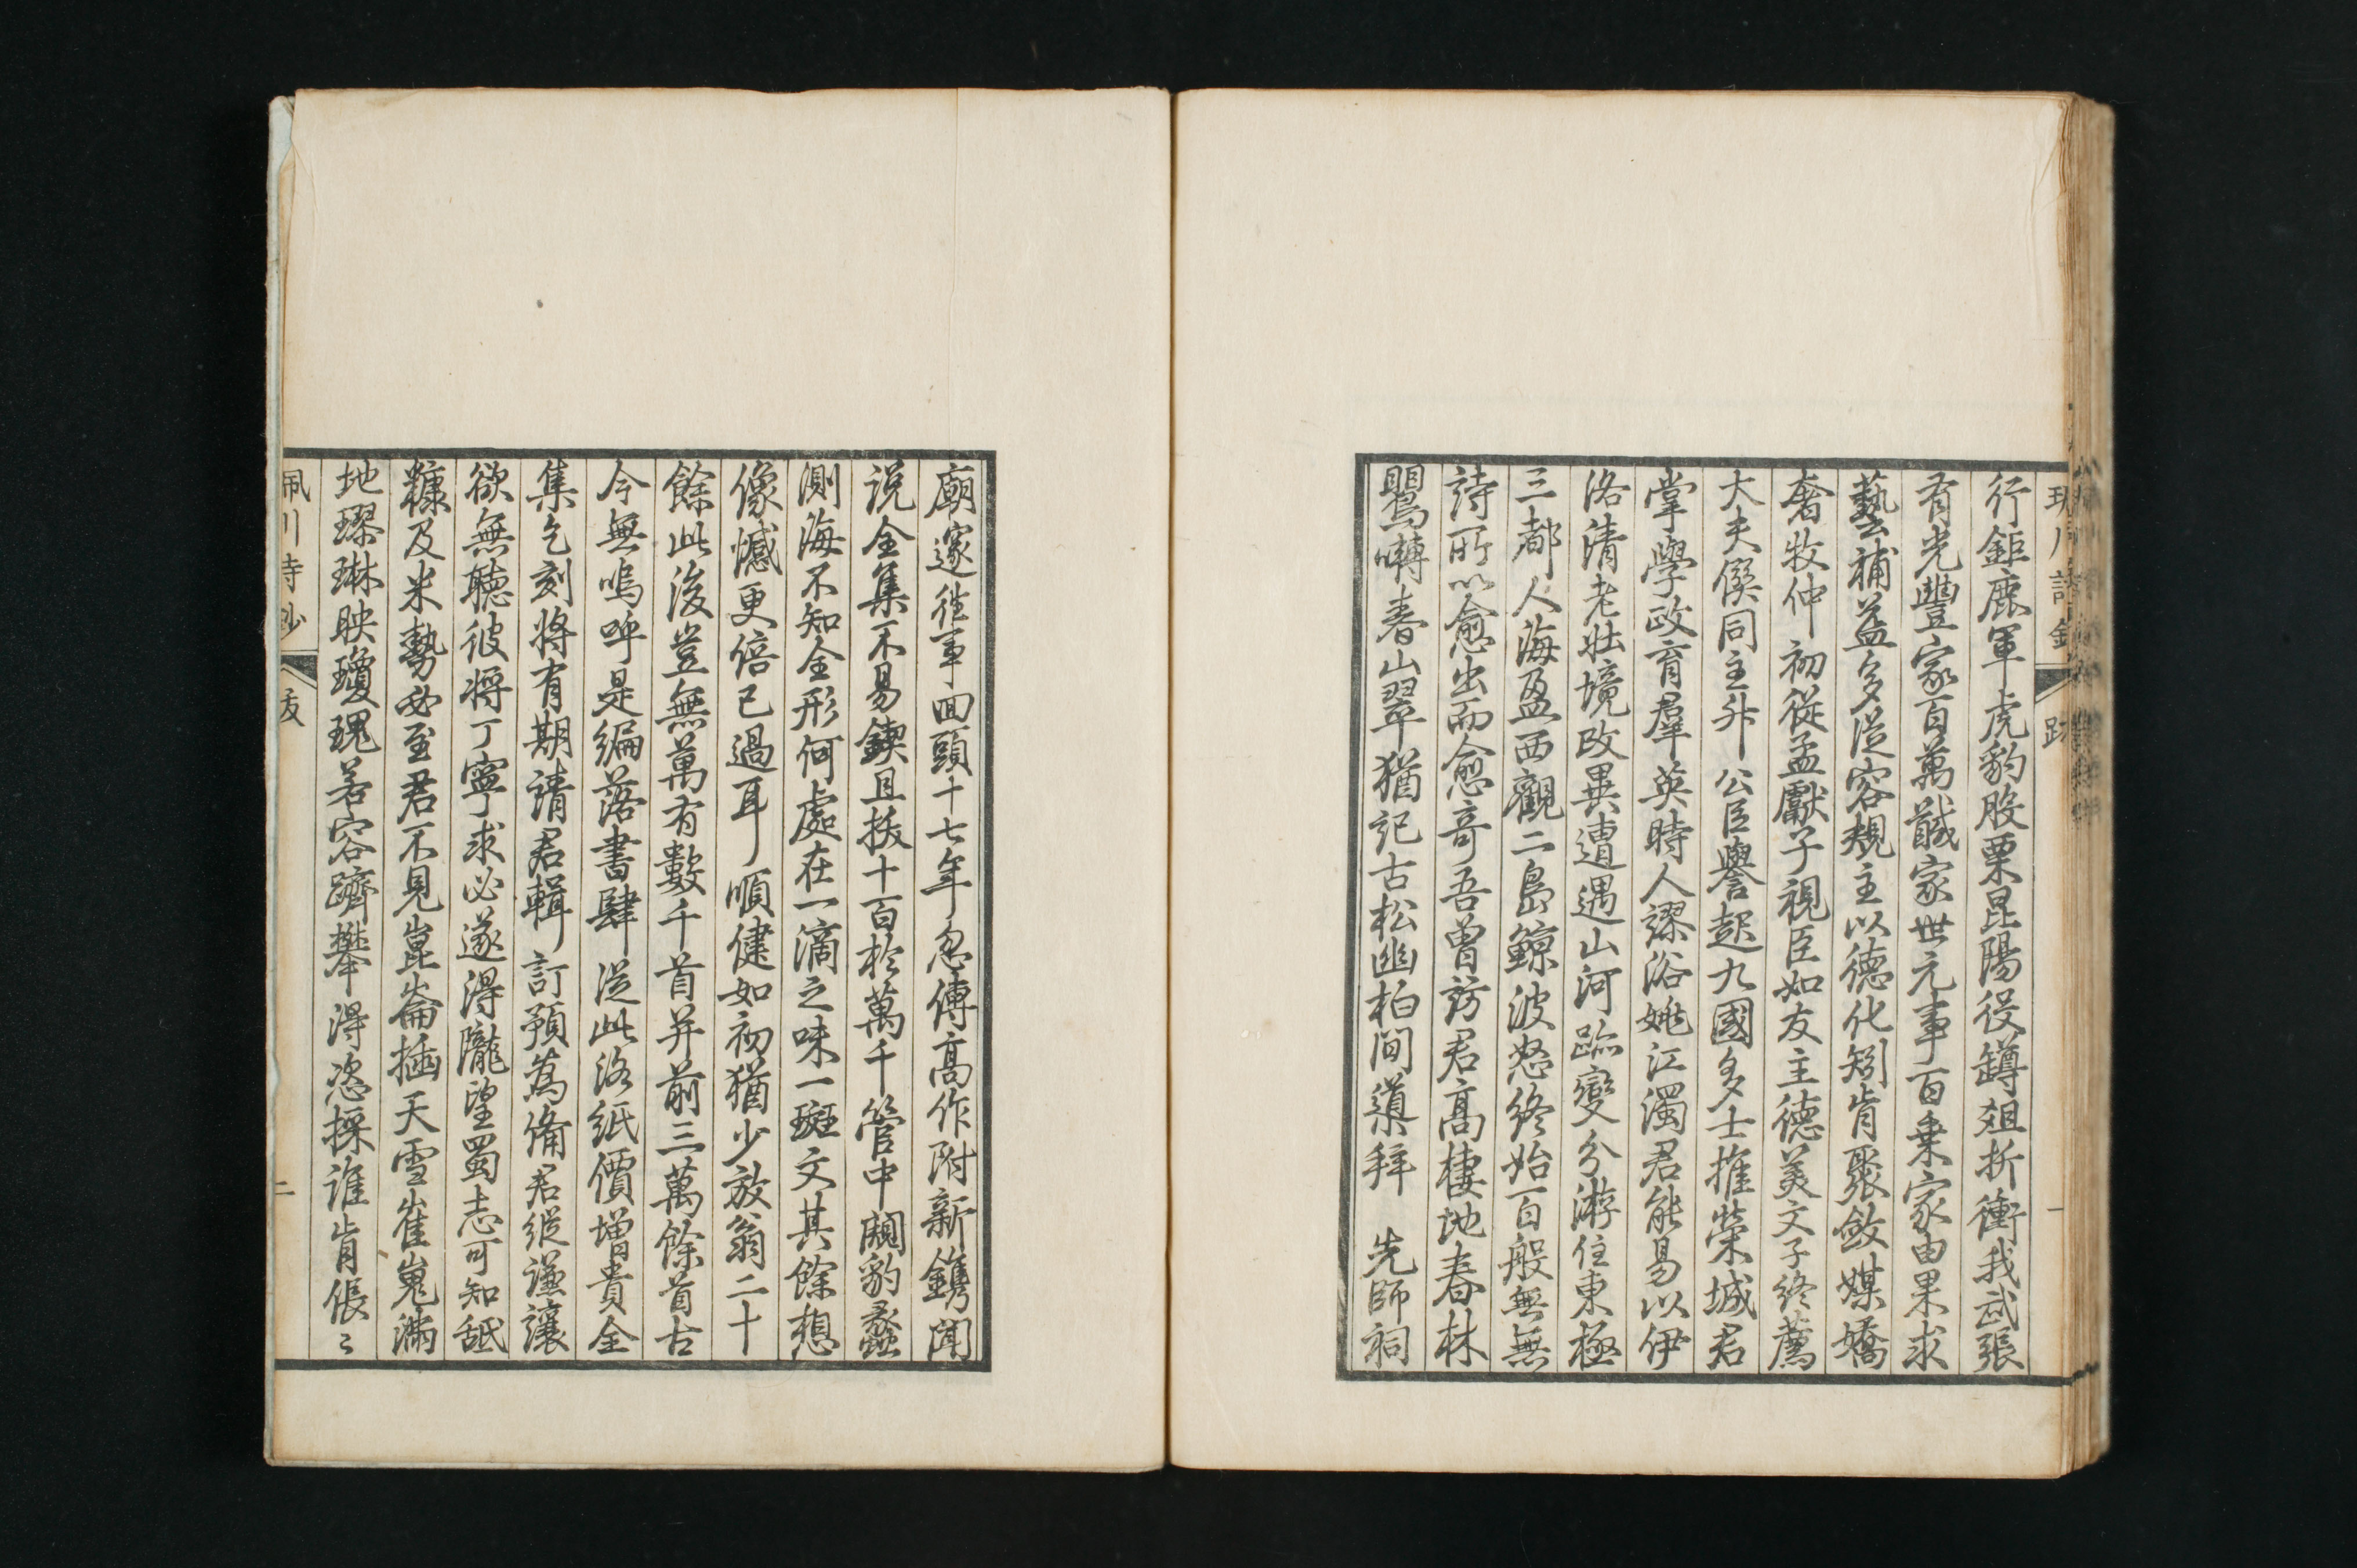 行鉅鹿軍虎豹股栗昆陽役罇爼折衝我武張
有光豐家百萬誠家世元事百乗家由果求
藝補益多從容規主以德化矧肯聚斂媒嬌
奢牧仲初從孟獻子視臣如友主德美文子終薦
大夫僎同主升公臣譽起九國多士推榮城君
掌學政育羣英時人謬浴姚江濁君能易以伊
洛清老壯境改異遭遇山河路變分游住東極
三都人海盈西觀二島鯨波怒終始一百般無無
詩所以愈出而愈奇吾曾訪君高棲池春林
鸎囀春山翠猶記古松幽柏間導拜 先師祠
廟邃徃事回頭十七年忽傳高作附新鐫聞
说全集不易鍥且拔十百於萬千管中闚豹蠡
測海不知全形何處在一滴之味一斑文其餘想
像憾更倍已過耳順健如初猶少放翁二十
餘此後豈無萬有數千首并前三萬餘首古
今無嗚呼是編落書肆從此洛紙價增貴全
集乞刻將有期請君輯訂預為備君縱謙讓
欲無聽彼將丁寧求必遂得隴望蜀志可知舐
糠及米勢必至君不見崑崙插天雪崔嵬滿
地璆琳映瓊瑰若容躋攀得恣採誰肯倀〻
佩川詩鈔 跋 二